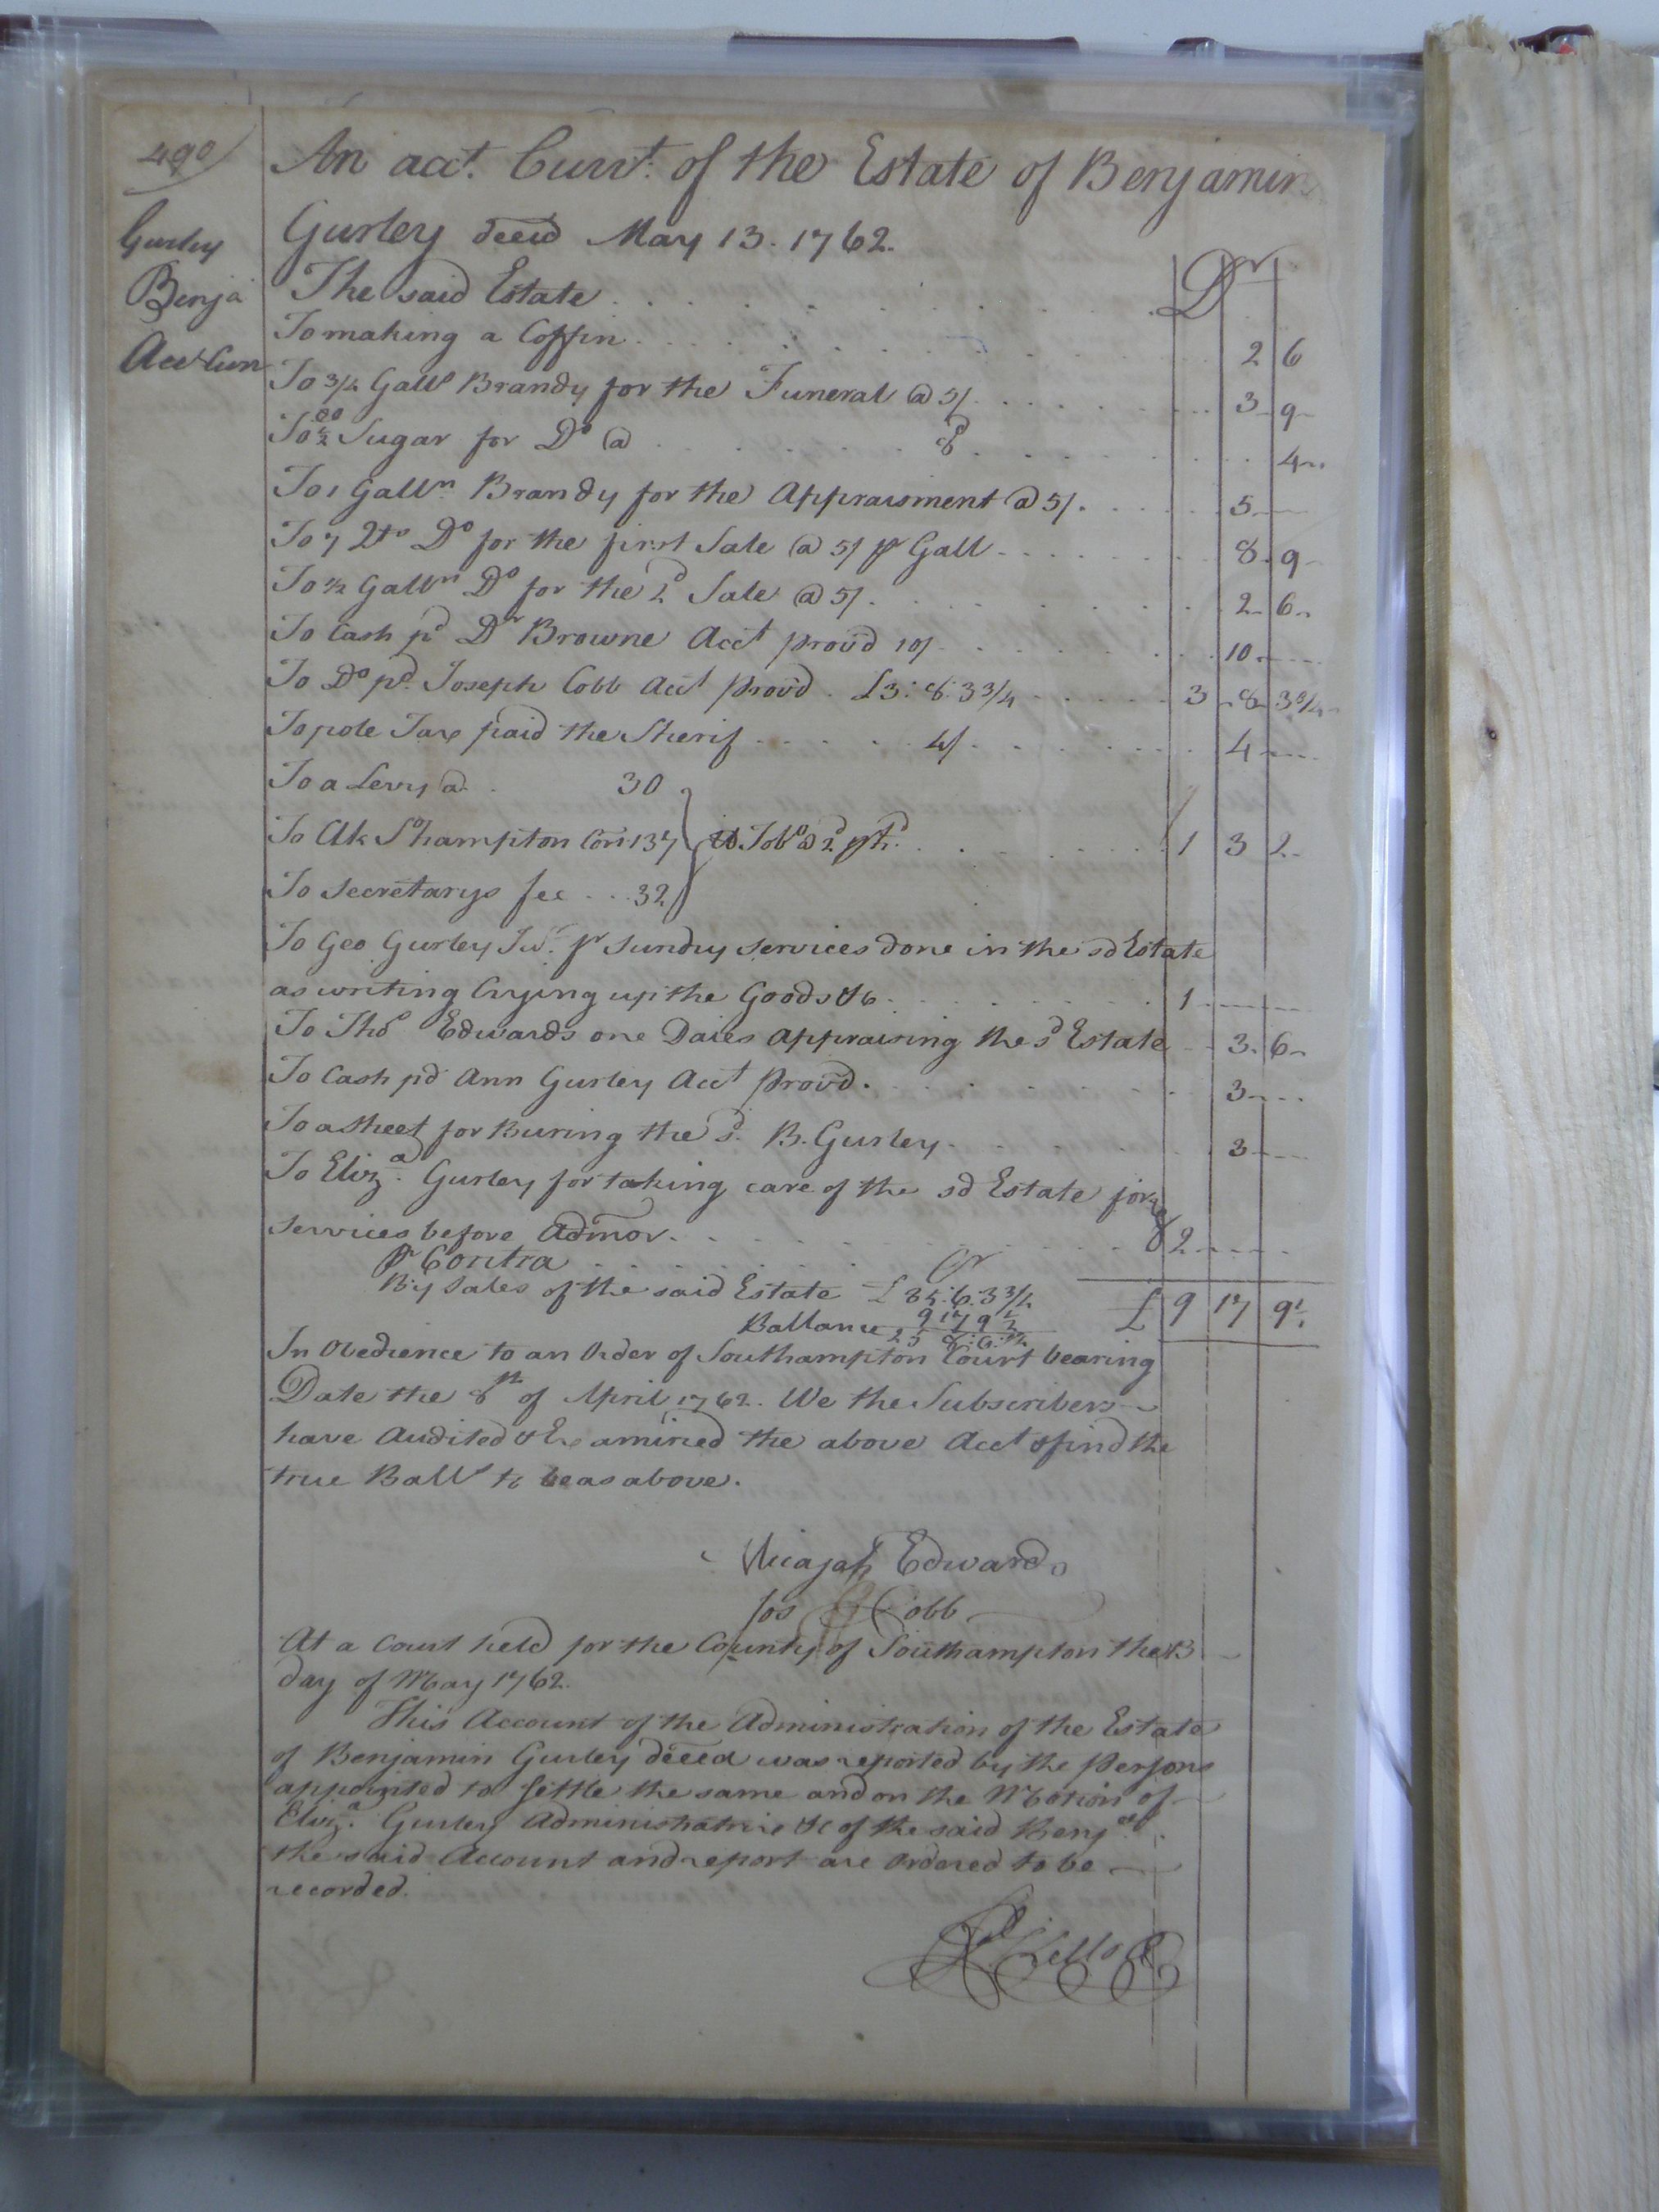 490
An acct. Currt. of the Estate of Benjamin
Gurley Benja Acct Curr
Gurley decd May 13. 1762.
The said Estate Dr
To making a Coffin 2 6
To 3/4 Galls Brandy for the Funeral @ 5/ 3 9
To Sugar for Do @ 8d 4
To 1 Galln. Brandy for the Appraisment @ 5/. 5
To 7 Qts Do for the first Sale @ 5/ pr Gall 8 9
To 1/2 Galln Do for the 2d Sale @ 5/. 2 6
To Cash pd Dr Browne Acct provd 10/ 10
To Do pd. Joseph Cobb Acct provd. £3: 8: 3 3/4 3 8 3 3/4
To pole Tax paid the Sherif 4/ 4
To a Levy @ 30
To Clk So hampton Cort 137 Tobo @ 2d 1 3 2
To Secretarys fee 32
To Geo Gurley Jur. pr Sundry Services done in the sd Estate
as writing Crying up the Goods &c. 1
To Thos Edwards one Daies appraising the sd Estate 3 6
To Cash pd Ann Gurley Acct provd. 3
To a Sheet for Buring the sd. B. Gurley 3
To Eliza. Gurley for taking care of the sd Estate for
Services before Admor. 2
pr Contra Cr
By Sales of the said Estate £35: 6: 3 3/4
£ 9 17 9 1/2
Ballance 25 8: 6: 1/2
In Obedience to an Order of Southampton Court bearing
Date the 8th of April 1762. We the Subscribers
have Audited & Examined the above Acct & find the
true Balls to be as above.
Micajah Edwards
Jos Cobb
At a Court held for the County of Southampton the 13
day of May 1762.
This Account of the Administration of the Estate
of Benjamin Gurley deced was reported by the Persons
appointed to settle the same and on the Motion of
Eliza. Gurley Administratrix &c of the said Benja.
the said Account and report are Ordered to be
recorded.